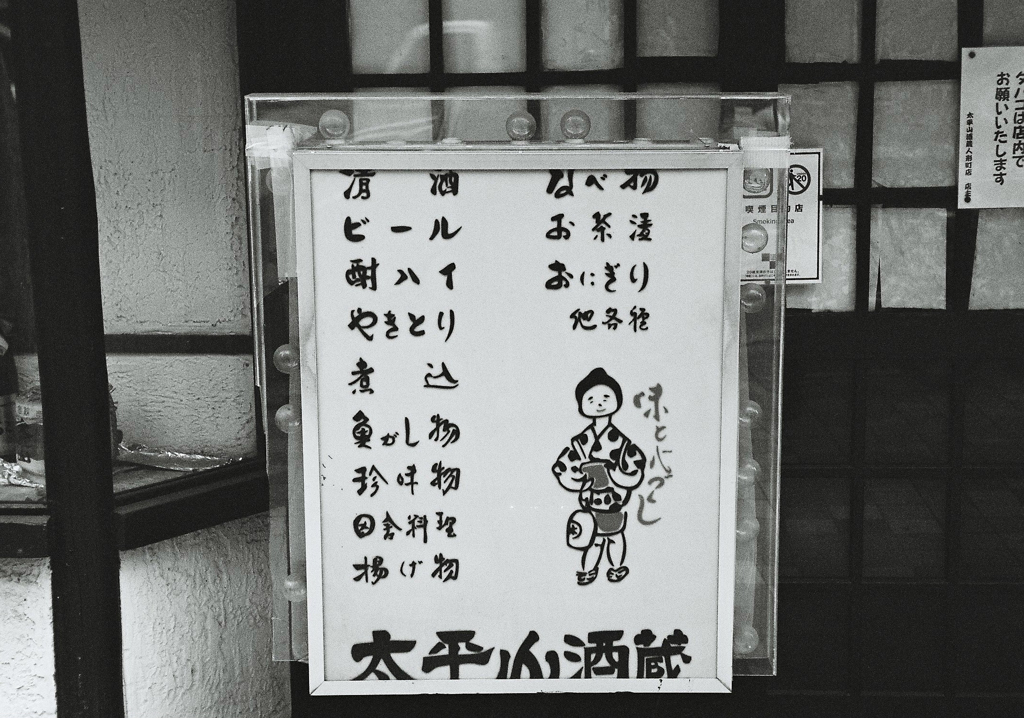 清酒
ビール
酎ハイ
やきとり
煮込
魚がし物
珍味物
田舎料理
揚げ物
なべ物
お茶漬
おにぎり
他各種
味と心づくし
太平山酒蔵
喫煙目的店
Smoking area
20
タバコは店内で
お願いいたします
太平山酒蔵人形町店 店主